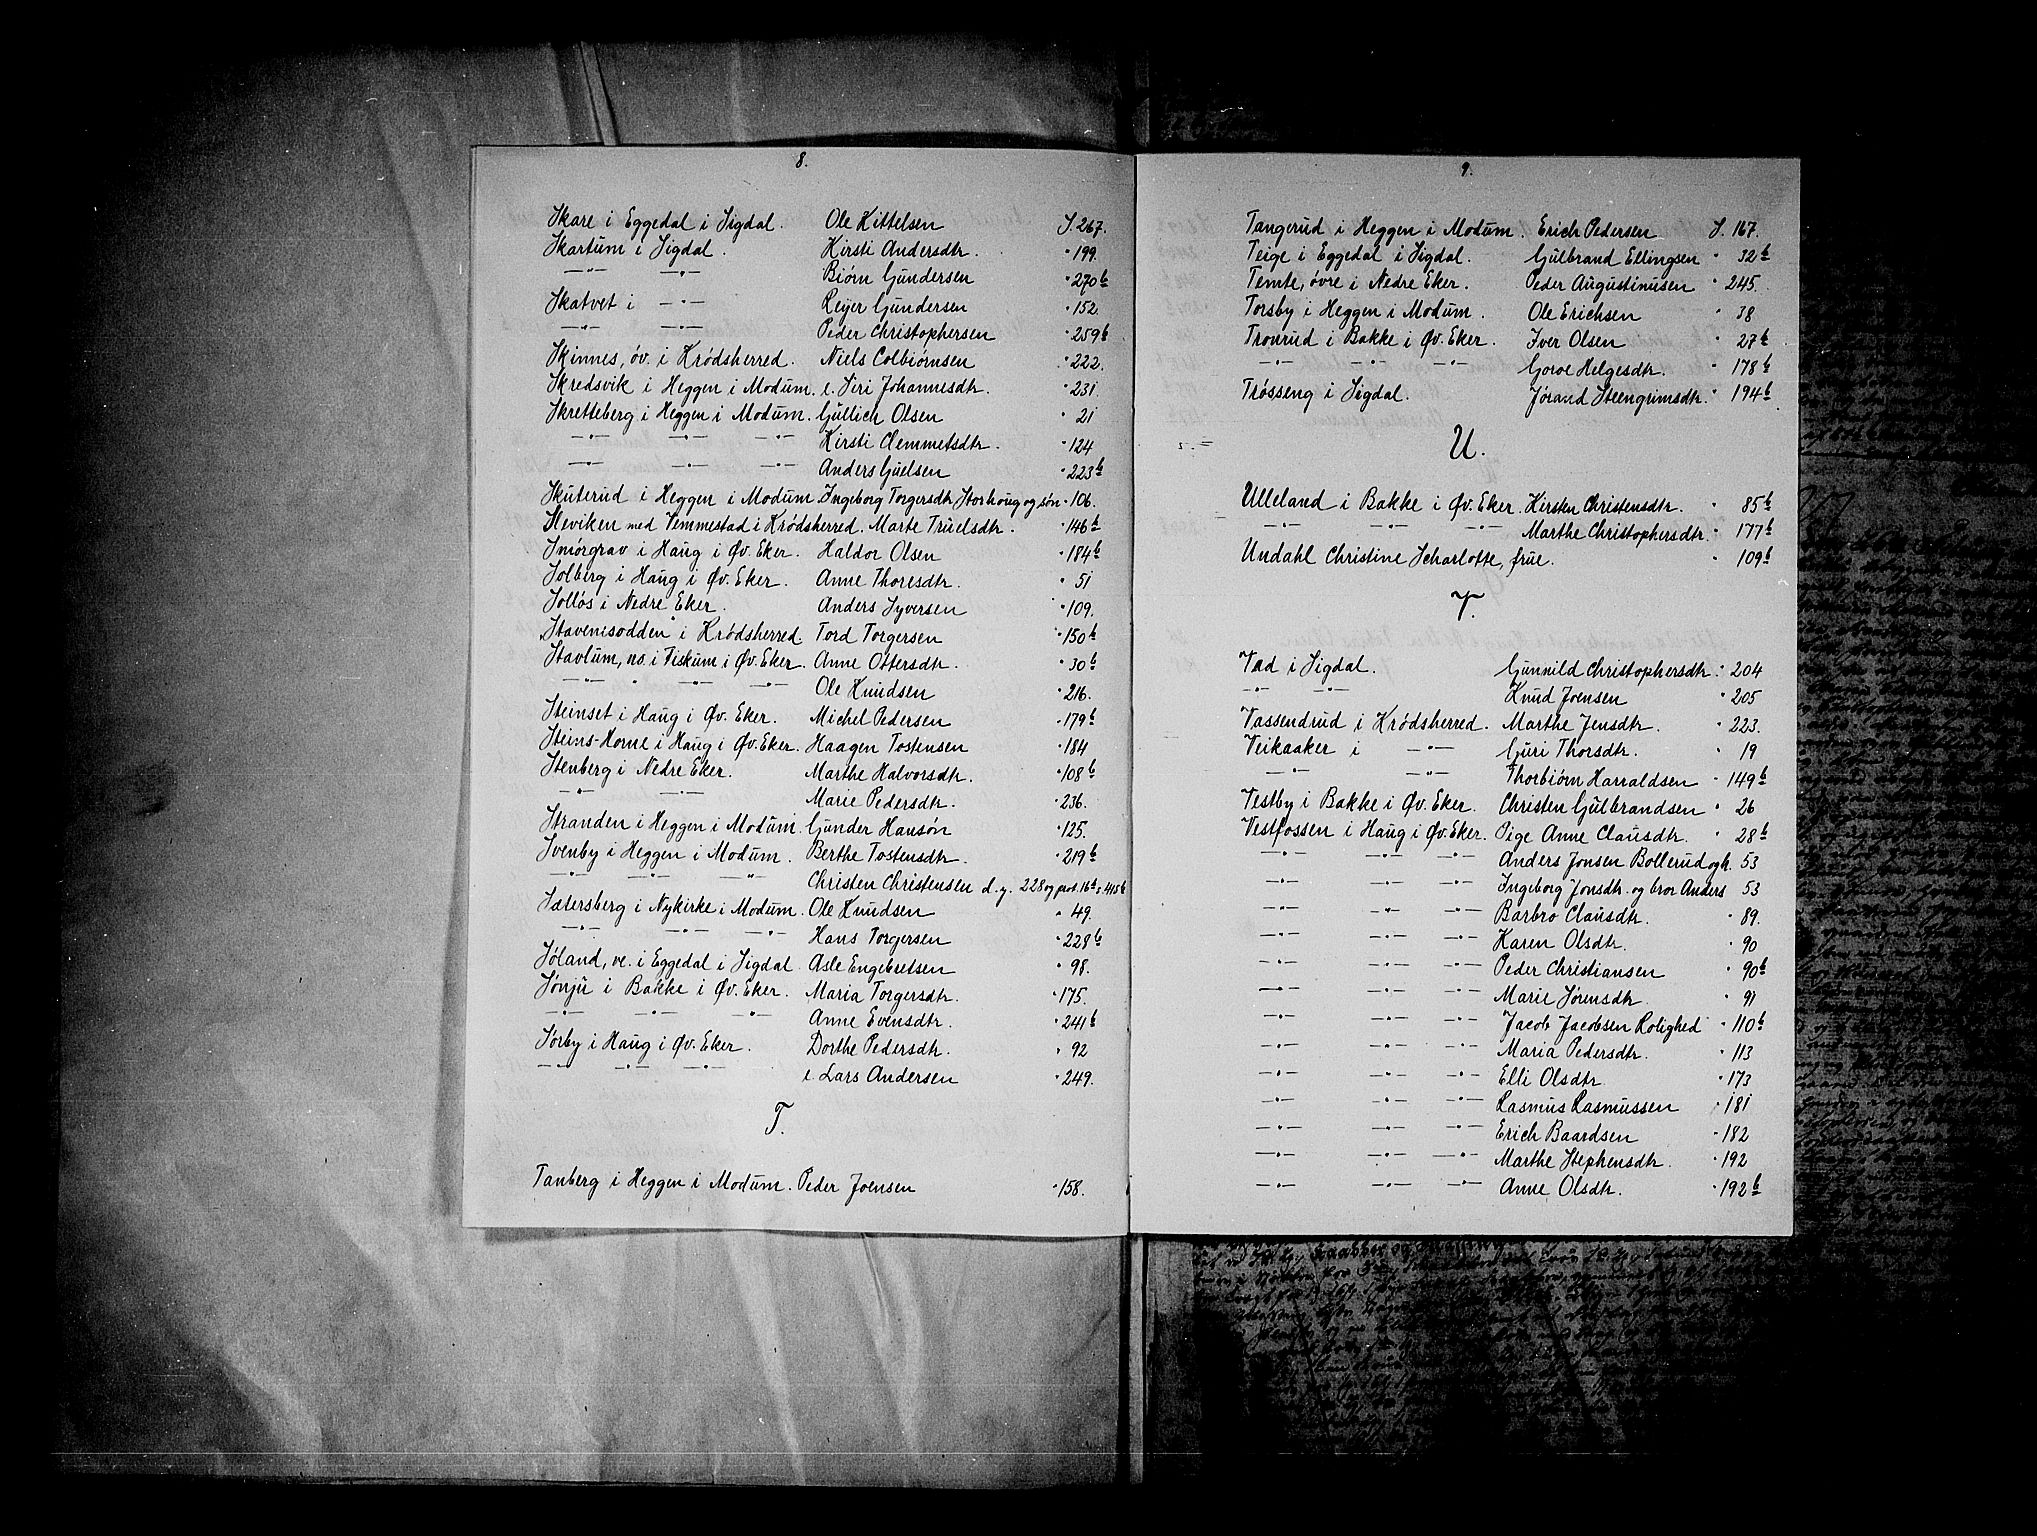 8.
Skare i Eggedal i Sigdal. Ole Kittelsen S. 267.
Skartum i Sigdal. Kirsti Andersdtr. " 199.
—"— —"— Biørn Gundersen " 270b
Skatvet i —"— Reyer Gundersen " 152
—"— —"— Peder Christophersen " 259b
Skinnes, øv. i Krødsherred. Niels Colbiørnsen " 222.
Skredsvik i Heggen i Modum. e. Siri Johannesdtr. " 231.
Skretteberg i Heggen i Modum. Gullich Olsen " 21
—"— —"— —"— Kirsti Clemmetsdtr. " 124
—"— —"— —"— Anders Gulsen " 223b
Skuterud i Heggen i Modum. Ingeborg Torgersdtr. Storhoug og søn " 106.
Sleviken med Vemmestad i Krødsherred. Marte Truelsdtr. " 146b
Smørgrav i Haug i Øv. Eker. Haldor Olsen " 184b
Solberg i Haug i Øv. Eker. Anne Thoresdtr. " 51
Solløs i Nedre Eker. Anders Syversen " 109.
"Stavenesodden" i Krødsherred. Tord Torgersen " 150b
Stavlum, ns. i Fiskum i Øv. Eker. Anne Ottersdtr. " 30b
—"— " —"— —"— Ole Knudsen " 216.
Steinset i Haug i Øv. Eker. Michel Pedersen " 179b
Steins-Horne i Haug i Øv. Eker. Haagen Tostensen " 184
Stenberg i Nedre Eker. Marthe Halvorsdtr. " 108b
—"— —"— Marie Pedersdtr. " 236.
Stranden i Heggen i Modum. Gunder Hansøn " 125.
Svenby i Heggen i Modum. Berthe Tostensdtr. " 219b
—"— —"— —"— Christen Christensen d.y. 228 og prot. 16b s. 415b
Sætersberg i Nykirke i Modum. Ole Knudsen " 49.
—"— —"— —"— Hans Torgersen " 228b
Søland, ve. i Eggedal i Sigdal. Asle Engebretsen " 98.
Sønju i Bakke i Øv. Eker. Maria Torgersdtr. " 175.
—"— —"— —"— Anne Evensdtr. " 241b
Sørby i Haug i Øv. Eker. Dorthe Pedersdtr. " 92
—"— —"— —"— e. Lars Andersen " 249.
T.
Tanberg i Heggen i Modum. Peder Joensen " 158.
9.
Tangerud i Heggen i Modum. Erich Pedersen S. 167.
Teige i Eggedal i Sigdal. Gulbrand Ellingsen " 32b
Temte, øvre i Nedre Eker. Peder Augustinusen " 245.
Torsby i Heggen i Modum. Ole Erichsen " 38
Tronrud i Bakke i Øv. Eker. Iver Olsen " 27b
—"— —"— —"— Goroe Helgesdtr. " 178b
Trøsseng i Sigdal. Jørand Steengrimsdtr. " 194b
U.
Ulleland i Bakke i Øv. Eker. Kirsten Christensdtr. " 85b
—"— —"— —"— Marthe Christophersdtr. " 177b
Undahl Christine Scharlotte, frue. " 109b
V.
Vad i Sigdal. Gunnild Christophersdtr. " 204
—"— —"— Knud Joensen " 205
Vassendrud i Krødsherred. Marthe Jensdtr. " 223.
Veikaaker i —"— Guri Thorsdtr. " 19
—"— —"— Thorbiørn Harraldsen " 149b
Vestby i Bakke i Øv. Eker. Christen Gulbrandsen " 26
Vestfossen i Haug i Øv. Eker. Pige Anne Clausdtr. " 28b
—"— —"— —"— Anders Jonsen Bollerud og h. 53
—"— —"— —"— Ingeborg Jonsdtr. og bror Anders 53
—"— —"— —"— Barbro Clausdtr. " 89.
—"— —"— —"— Karen Olsdtr. " 90
—"— —"— —"— Peder Christiansen " 90b
—"— —"— —"— Marie Sørensdtr. " 91
—"— —"— —"— Jacob Jacobsen Rolighed " 110b
—"— —"— —"— Maria Pedersdtr. " 113
—"— —"— —"— Elli Olsdtr. " 173
—"— —"— —"— Rasmus Rasmussen " 181
—"— —"— —"— Erich Baardsen " 182
—"— —"— —"— Marthe Stephensdtr. " 192
—"— —"— —"— Anne Olsdtr. " 192b